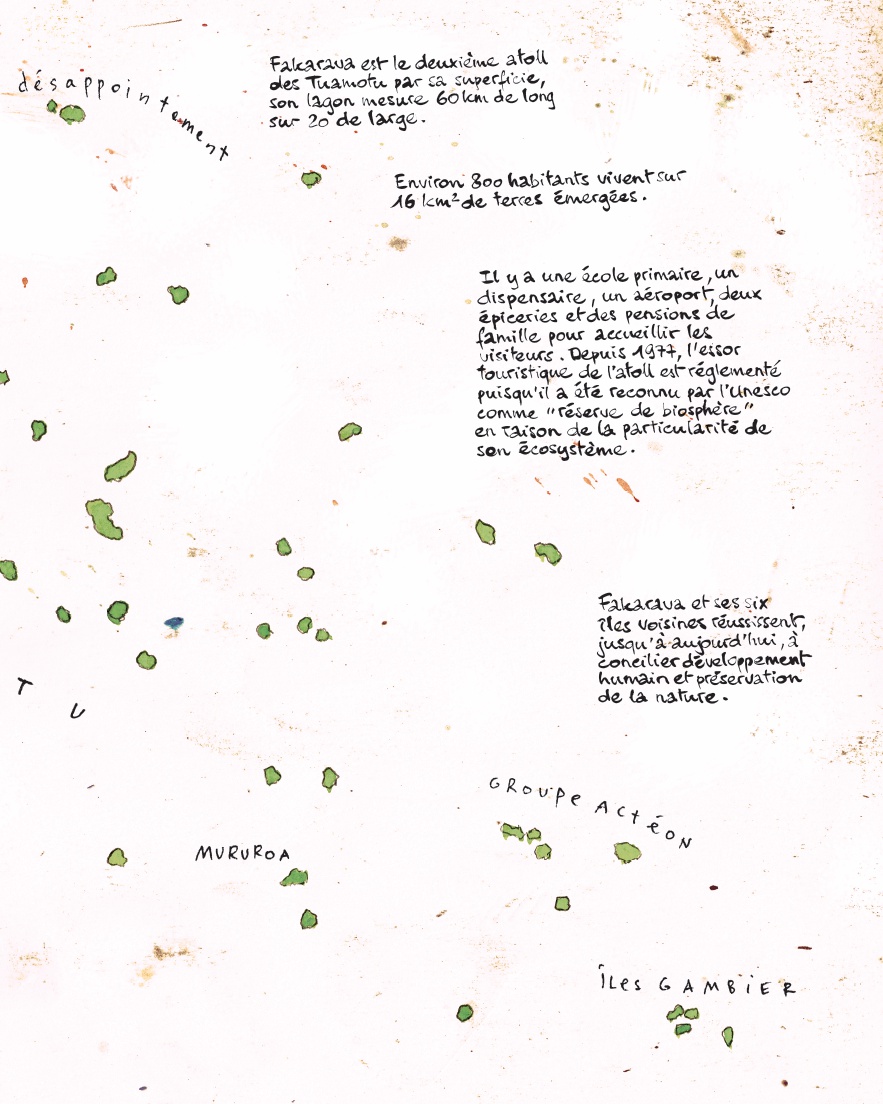 désappointement
Fakarava est le deuxième atoll
des Tuamotu par sa superficie,
son lagon mesure 60 km de long
sur 20 de large.
Environ 800 habitants vivent sur
16 km² de terres émergées.
Il y a une école primaire, un
dispensaire, un aéroport, deux
épiceries et des pensions de
famille pour accueillir les
visiteurs. Depuis 1977, l'essor
touristique de l'atoll est réglementé
puisqu'il a été reconnu par l'Unesco
comme "réserve de biosphère"
en raison de la particularité de
son écosystème.
Fakarava et ses six
îles voisines réussissent,
jusqu'à aujourd'hui, à
concilier développement
humain et préservation
de la nature.
T U
GROUPE ACTÉON
MURUROA
ÎLES GAMBIER